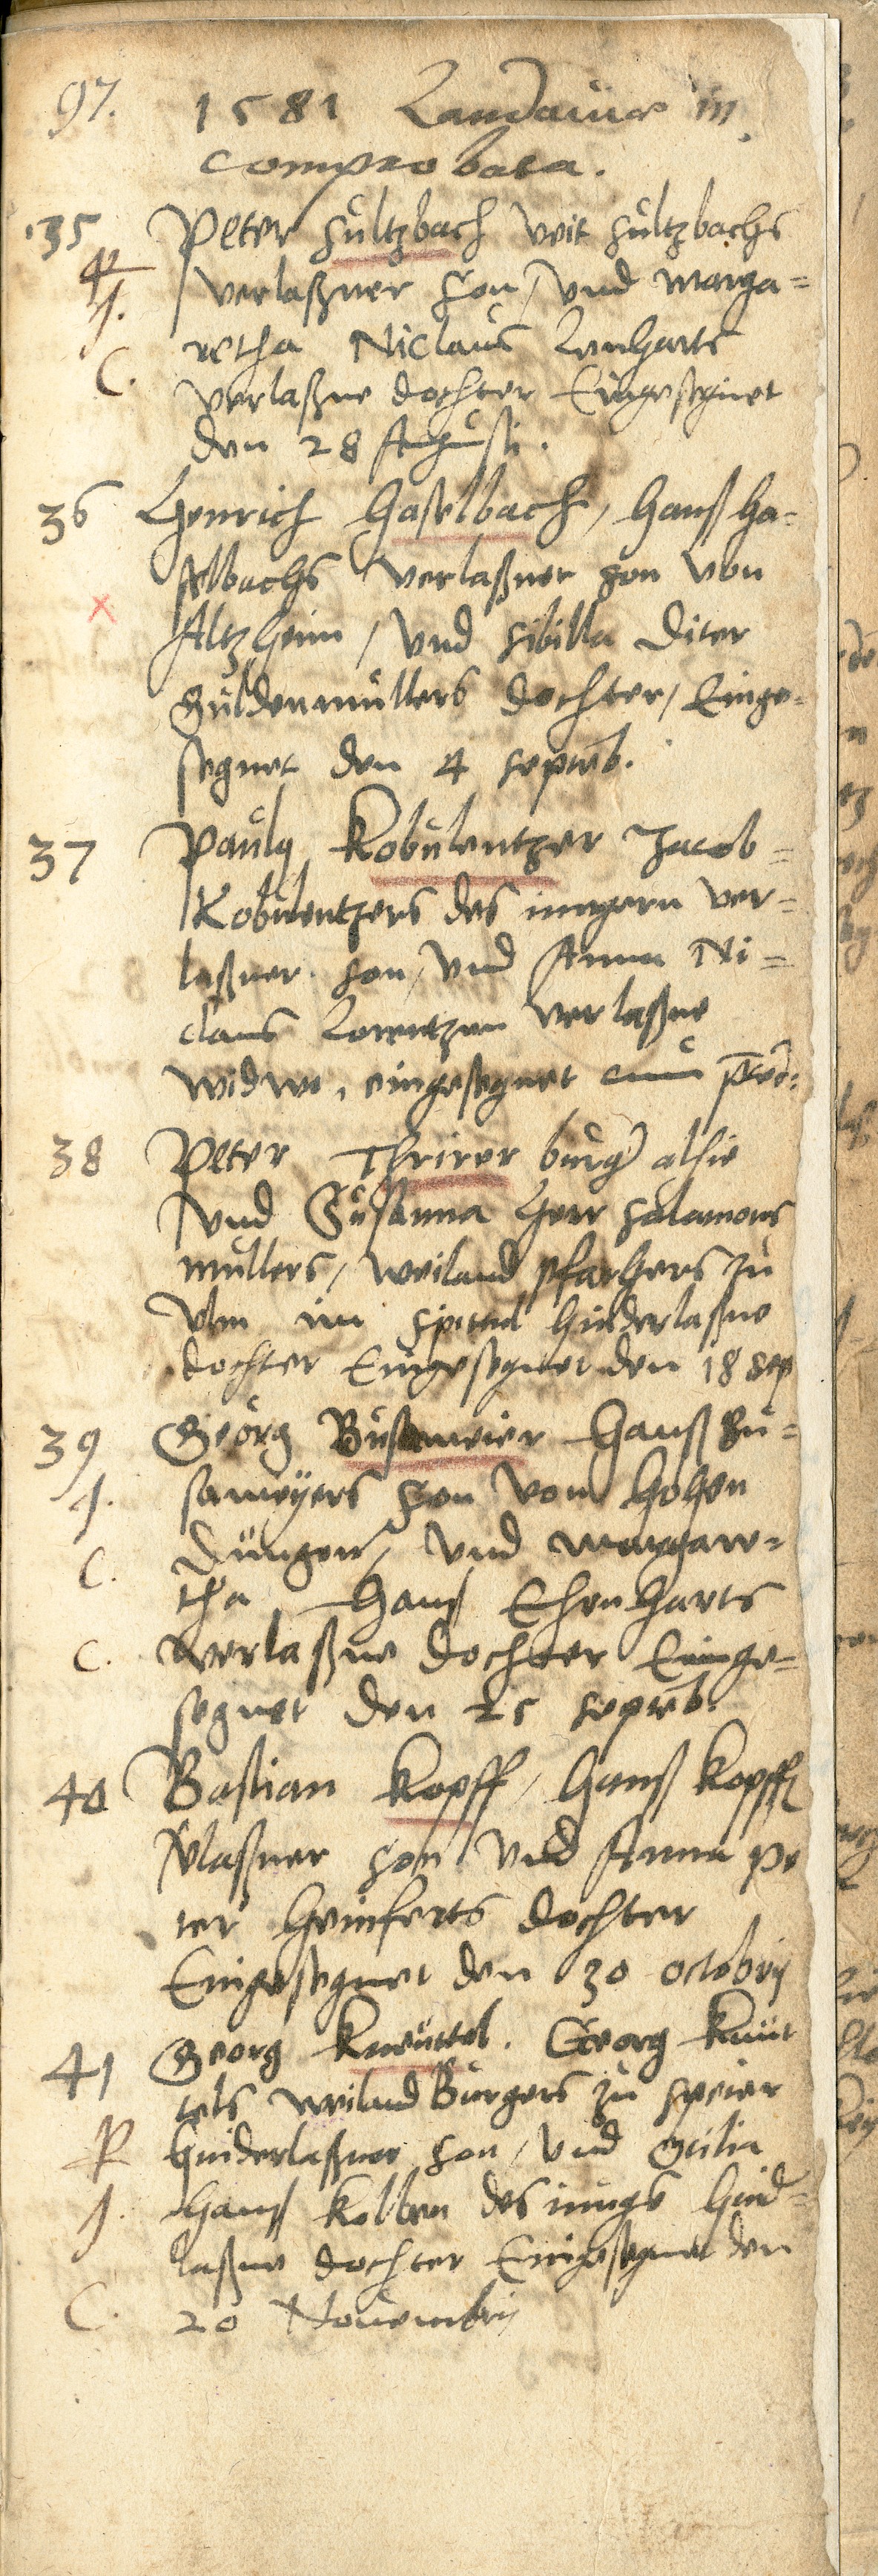 97. 1581 Landauiae in
comprobata.
35 Peter Sultzbach Veit Sultzbachs
R verlaßner son, und Marga=
J. retha Niclaus Lenharts
C. verlaßne dochter Eingesegnet
den 28 Augusti.
36 Henrich Haselbach, Hans Ha=
selbachs verlaßner son von
x Altzheim, und Sibilla Diter
Guldenmullers dochter, Einge=
segnet den 4 Septeb.
37 Paulq Kobulentzer Jacob=
Kobulentzers des jungern ver=
laßner son, und Anna Ni=
claus Lorentzen verlaßne
widwe, eingesegnet
38 Peter Thrirer burg alhie
und Susanna Herr Salamons
mullers, weiland pfarhers zu
Ulm im Spital hinderlaßne
dochter Eingesegnet den 18 Sep
39 Georg Busameier Hanß Bu=
J. sameyers son von Hohen
C. Dungen, und Margare=
tha Hans Ehenharts
C. verlaßne dochter Einge=
segnet den 25 Septeb.
40 Bastian Kopff, Hanß Kopffs
vlaßner son und Anna Pe
ter Heinferts dochter
Eingesegnet den 30 octobris
41 Georg Kneuttel. Georg Kneut
tels weiland Burgers zu Speier
R hinderlaßner son, und Cecilia
J. Hans Kolben des jungs hind=
laßne dochter Eingesegnet den
C. 20 Novembris